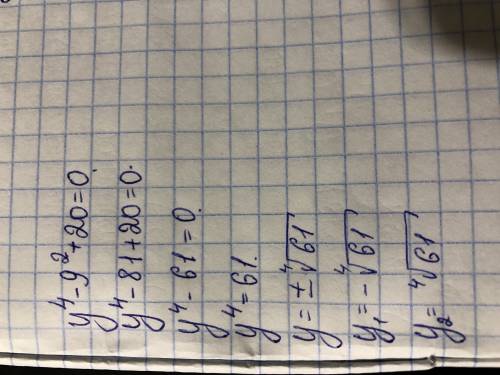 y⁴-9²+20=0.
y⁴-81+20=0.
y⁴-61=0.
y⁴=61.
y=±⁴√61
y₁=-⁴√61
y₂=⁴√61